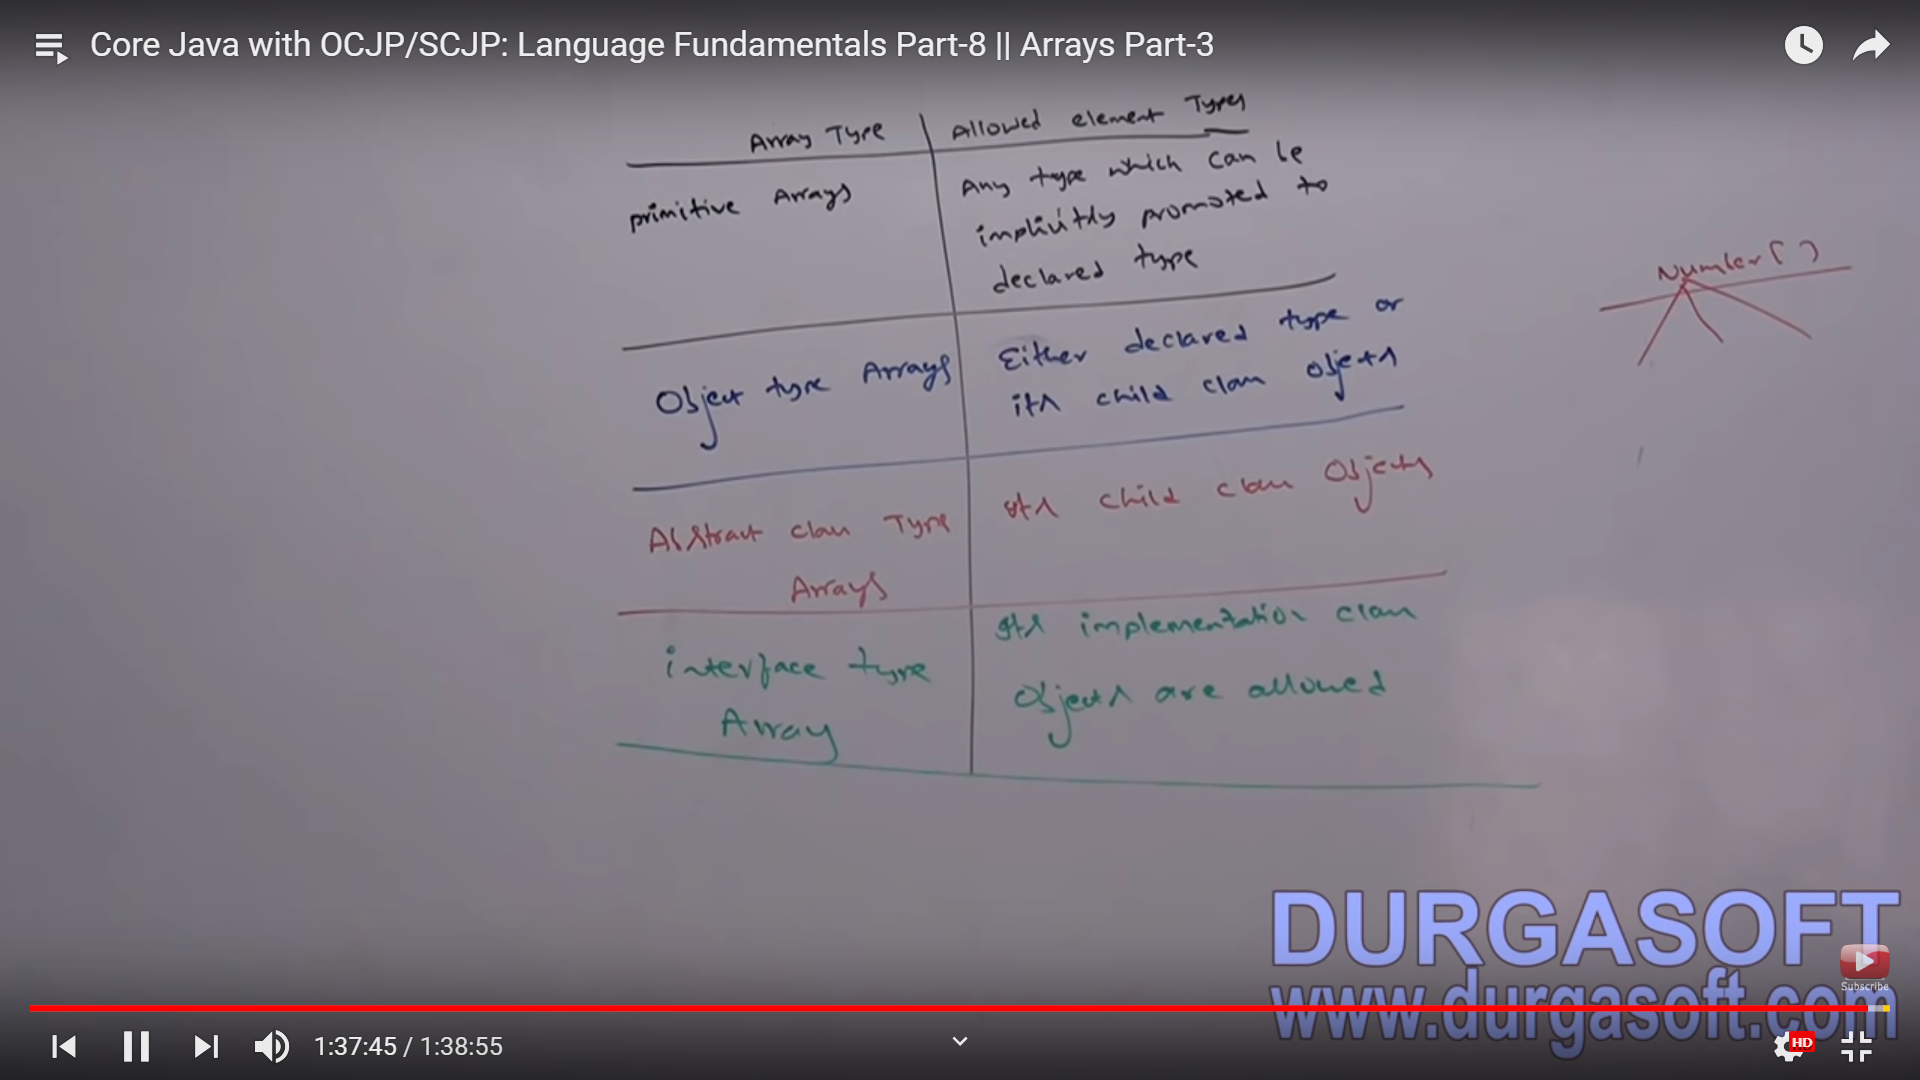 Core Java with OCJP/SCJP: Language Fundamentals Part-8 || Arrays Part-3
Array Type
Allowed element Types
primitive Arrays
Any type which can be
implicitly promoted to
declared type
Number[ ]
Object type Arrays
Either declared type or
its child class objects
Abstract class Type
Arrays
Its child class Objects
interface type
Array
Its implementation class
Objects are allowed
DURGASOFT
www.durgasoft.com
Subscribe
1:37:45 / 1:38:55
HD